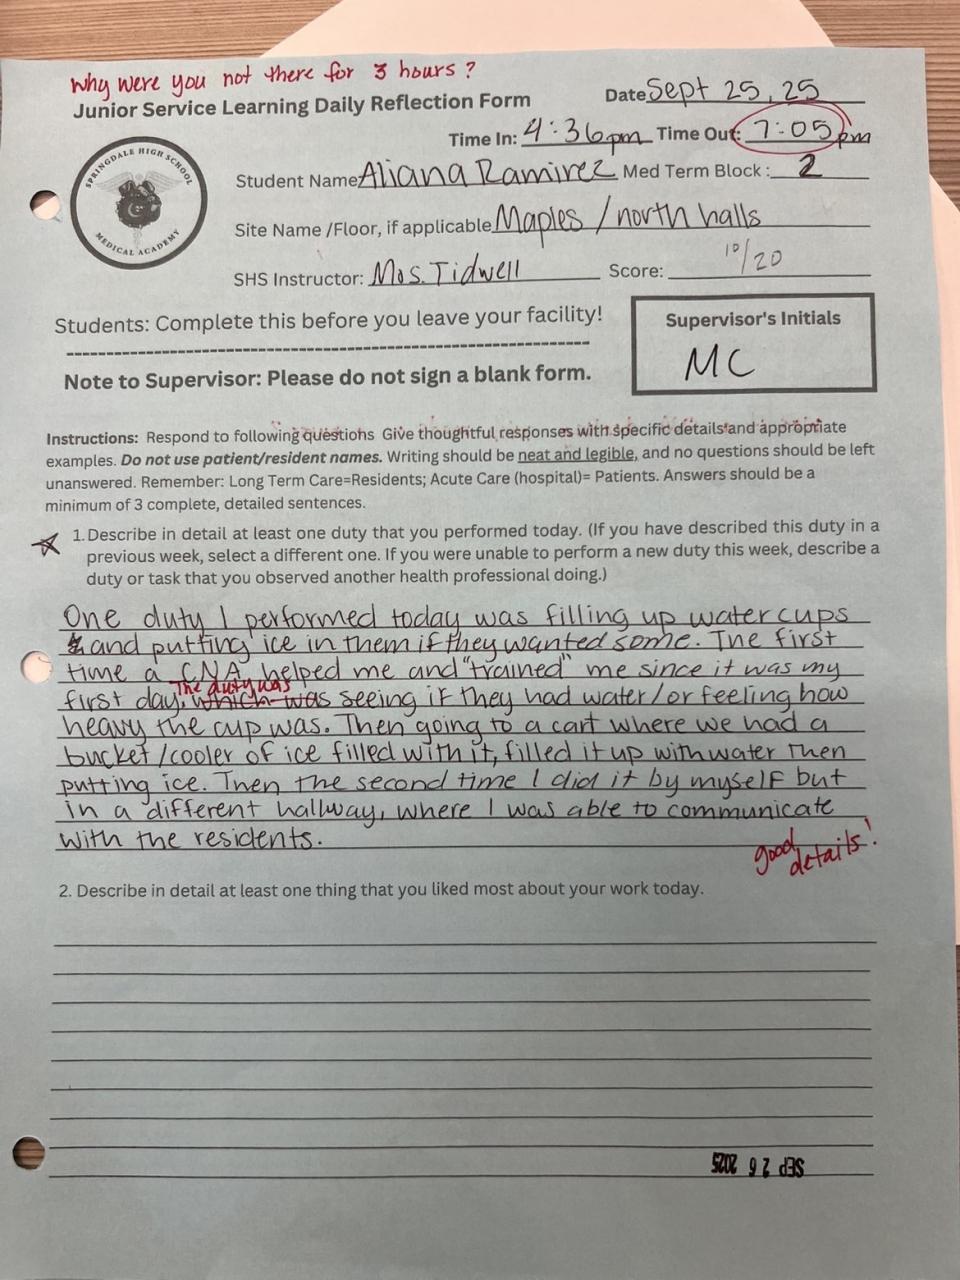 why were you not there for 3 hours?
Junior Service Learning Daily Reflection Form
Date Sept 25, 25
Time In: 4:36pm Time Out: 7:05pm
SPRINGDALE HIGH SCHOOL
MEDICAL ACADEMY
Student Name Aliana Ramirez Med Term Block: 2
Site Name /Floor, if applicable Maples / north halls
SHS Instructor: Mrs. Tidwell Score: 10/20
Students: Complete this before you leave your facility!
Supervisor's Initials
MC
Note to Supervisor: Please do not sign a blank form.
Instructions: Respond to following questions Give thoughtful responses with specific details and appropriate
examples. Do not use patient/resident names. Writing should be neat and legible, and no questions should be left
unanswered. Remember: Long Term Care=Residents; Acute Care (hospital)= Patients. Answers should be a
minimum of 3 complete, detailed sentences.
1. Describe in detail at least one duty that you performed today. (If you have described this duty in a
previous week, select a different one. If you were unable to perform a new duty this week, describe a
duty or task that you observed another health professional doing.)
One duty I performed today was filling up water cups
and putting ice in them if they wanted some. The first
time a CNA helped me and "trained" me since it was my
The duty was
first day, which was seeing if they had water/or feeling how
heavy the cup was. Then going to a cart where we had a
bucket/cooler of ice filled with it, filled it up with water then
putting ice. Then the second time I did it by myself but
in a different hallway, where I was able to communicate
with the residents.
good details!
2. Describe in detail at least one thing that you liked most about your work today.
SEP 26 2025